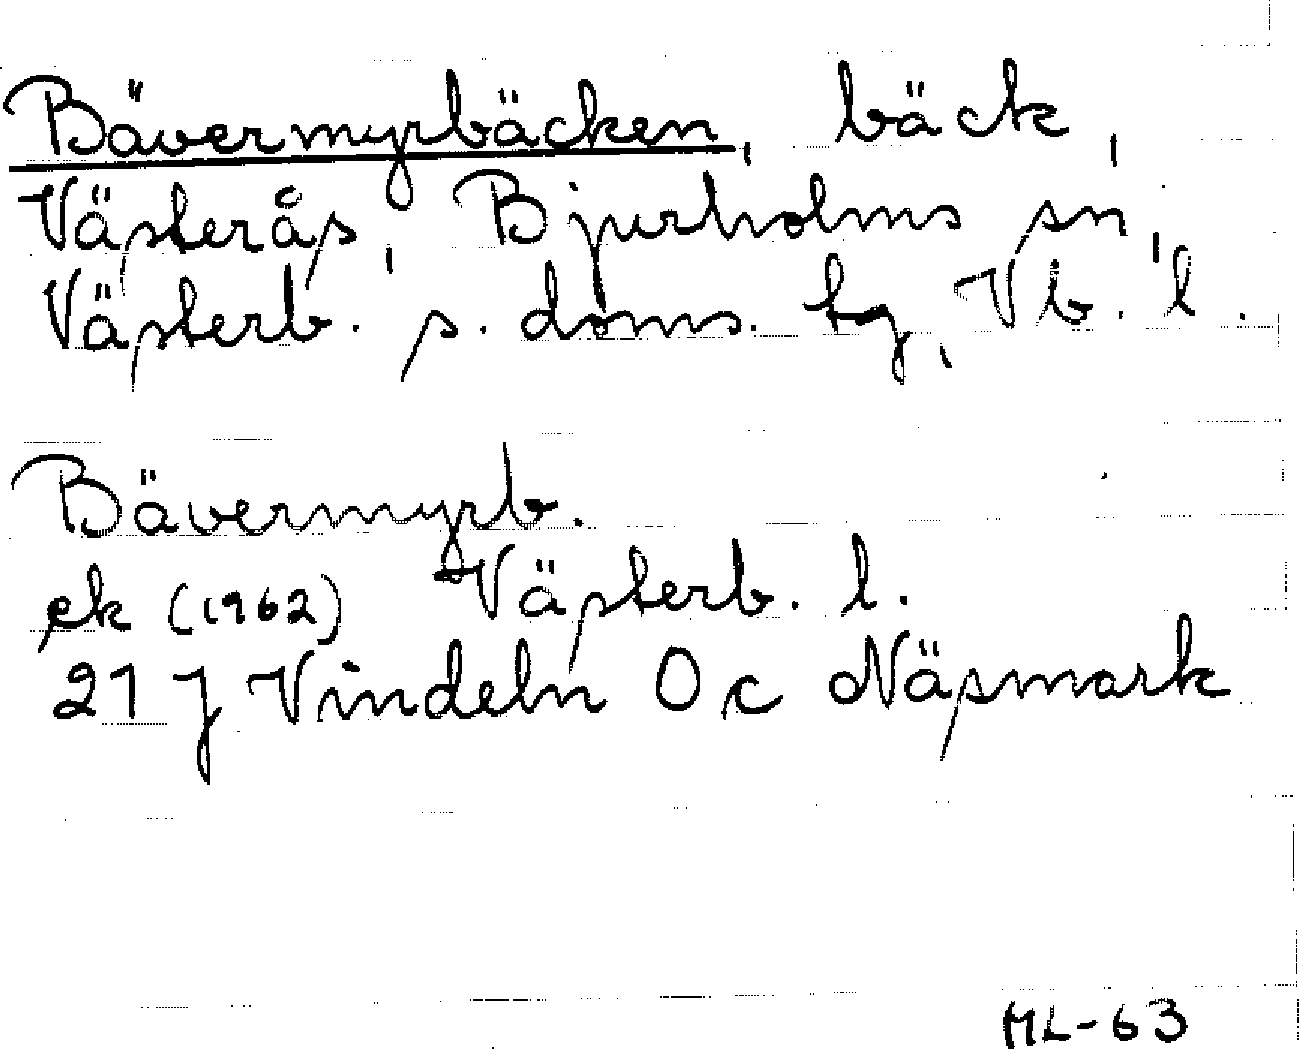 Bävermyrbäcken, bäck,
Västerås, Bjurholms sn,
Västerb. s. doms. tg, Vb. l.
Bävermyrb.
ek (1962) Västerb. l.
21 J Vindeln O c Näsmark
ML-63